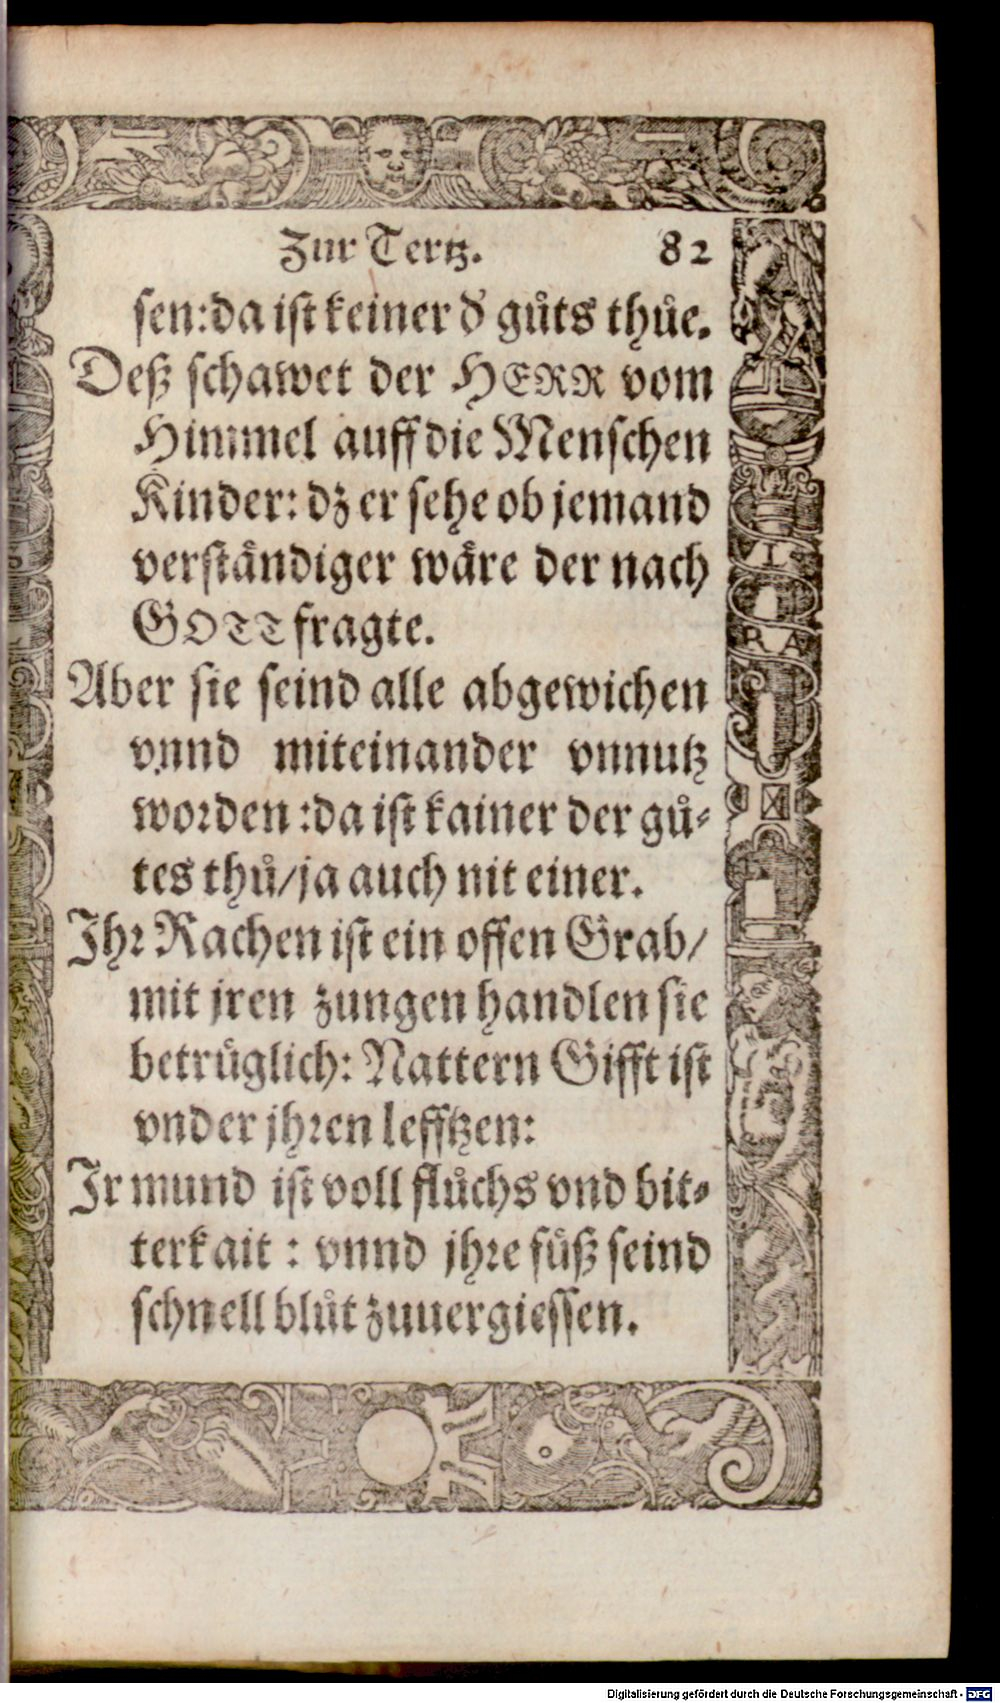 Zur Tertz. 82
sen:da ist keiner d' gůts thůe.
Deß schawet der HERR vom
Himmel auff die Menschen
Kinder: dz er sehe ob jemand
verständiger wäre der nach
GOTT fragte.
Aber sie seind alle abgewichen
vnnd miteinander vnnutz
worden :da ist kainer der gů⸗
tes thů/ja auch nit einer.
Ihr Rachen ist ein offen Grab/
mit jren zungen handlen sie
betrüglich: Nattern Gifft ist
vnder jhren lefftzen:
Ir mund ist voll flůchs vnd bit⸗
terkait : vnnd jhre füß seind
schnell blůt zuuergiessen.
L
RA
Digitalisierung gefördert durch die Deutsche Forschungsgemeinschaft - DFG